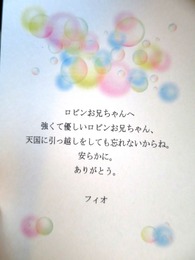 ロビンお兄ちゃんへ
強くて優しいロビンお兄ちゃん、
天国に引っ越しをしても忘れないからね。
安らかに。
ありがとう。
フィオ